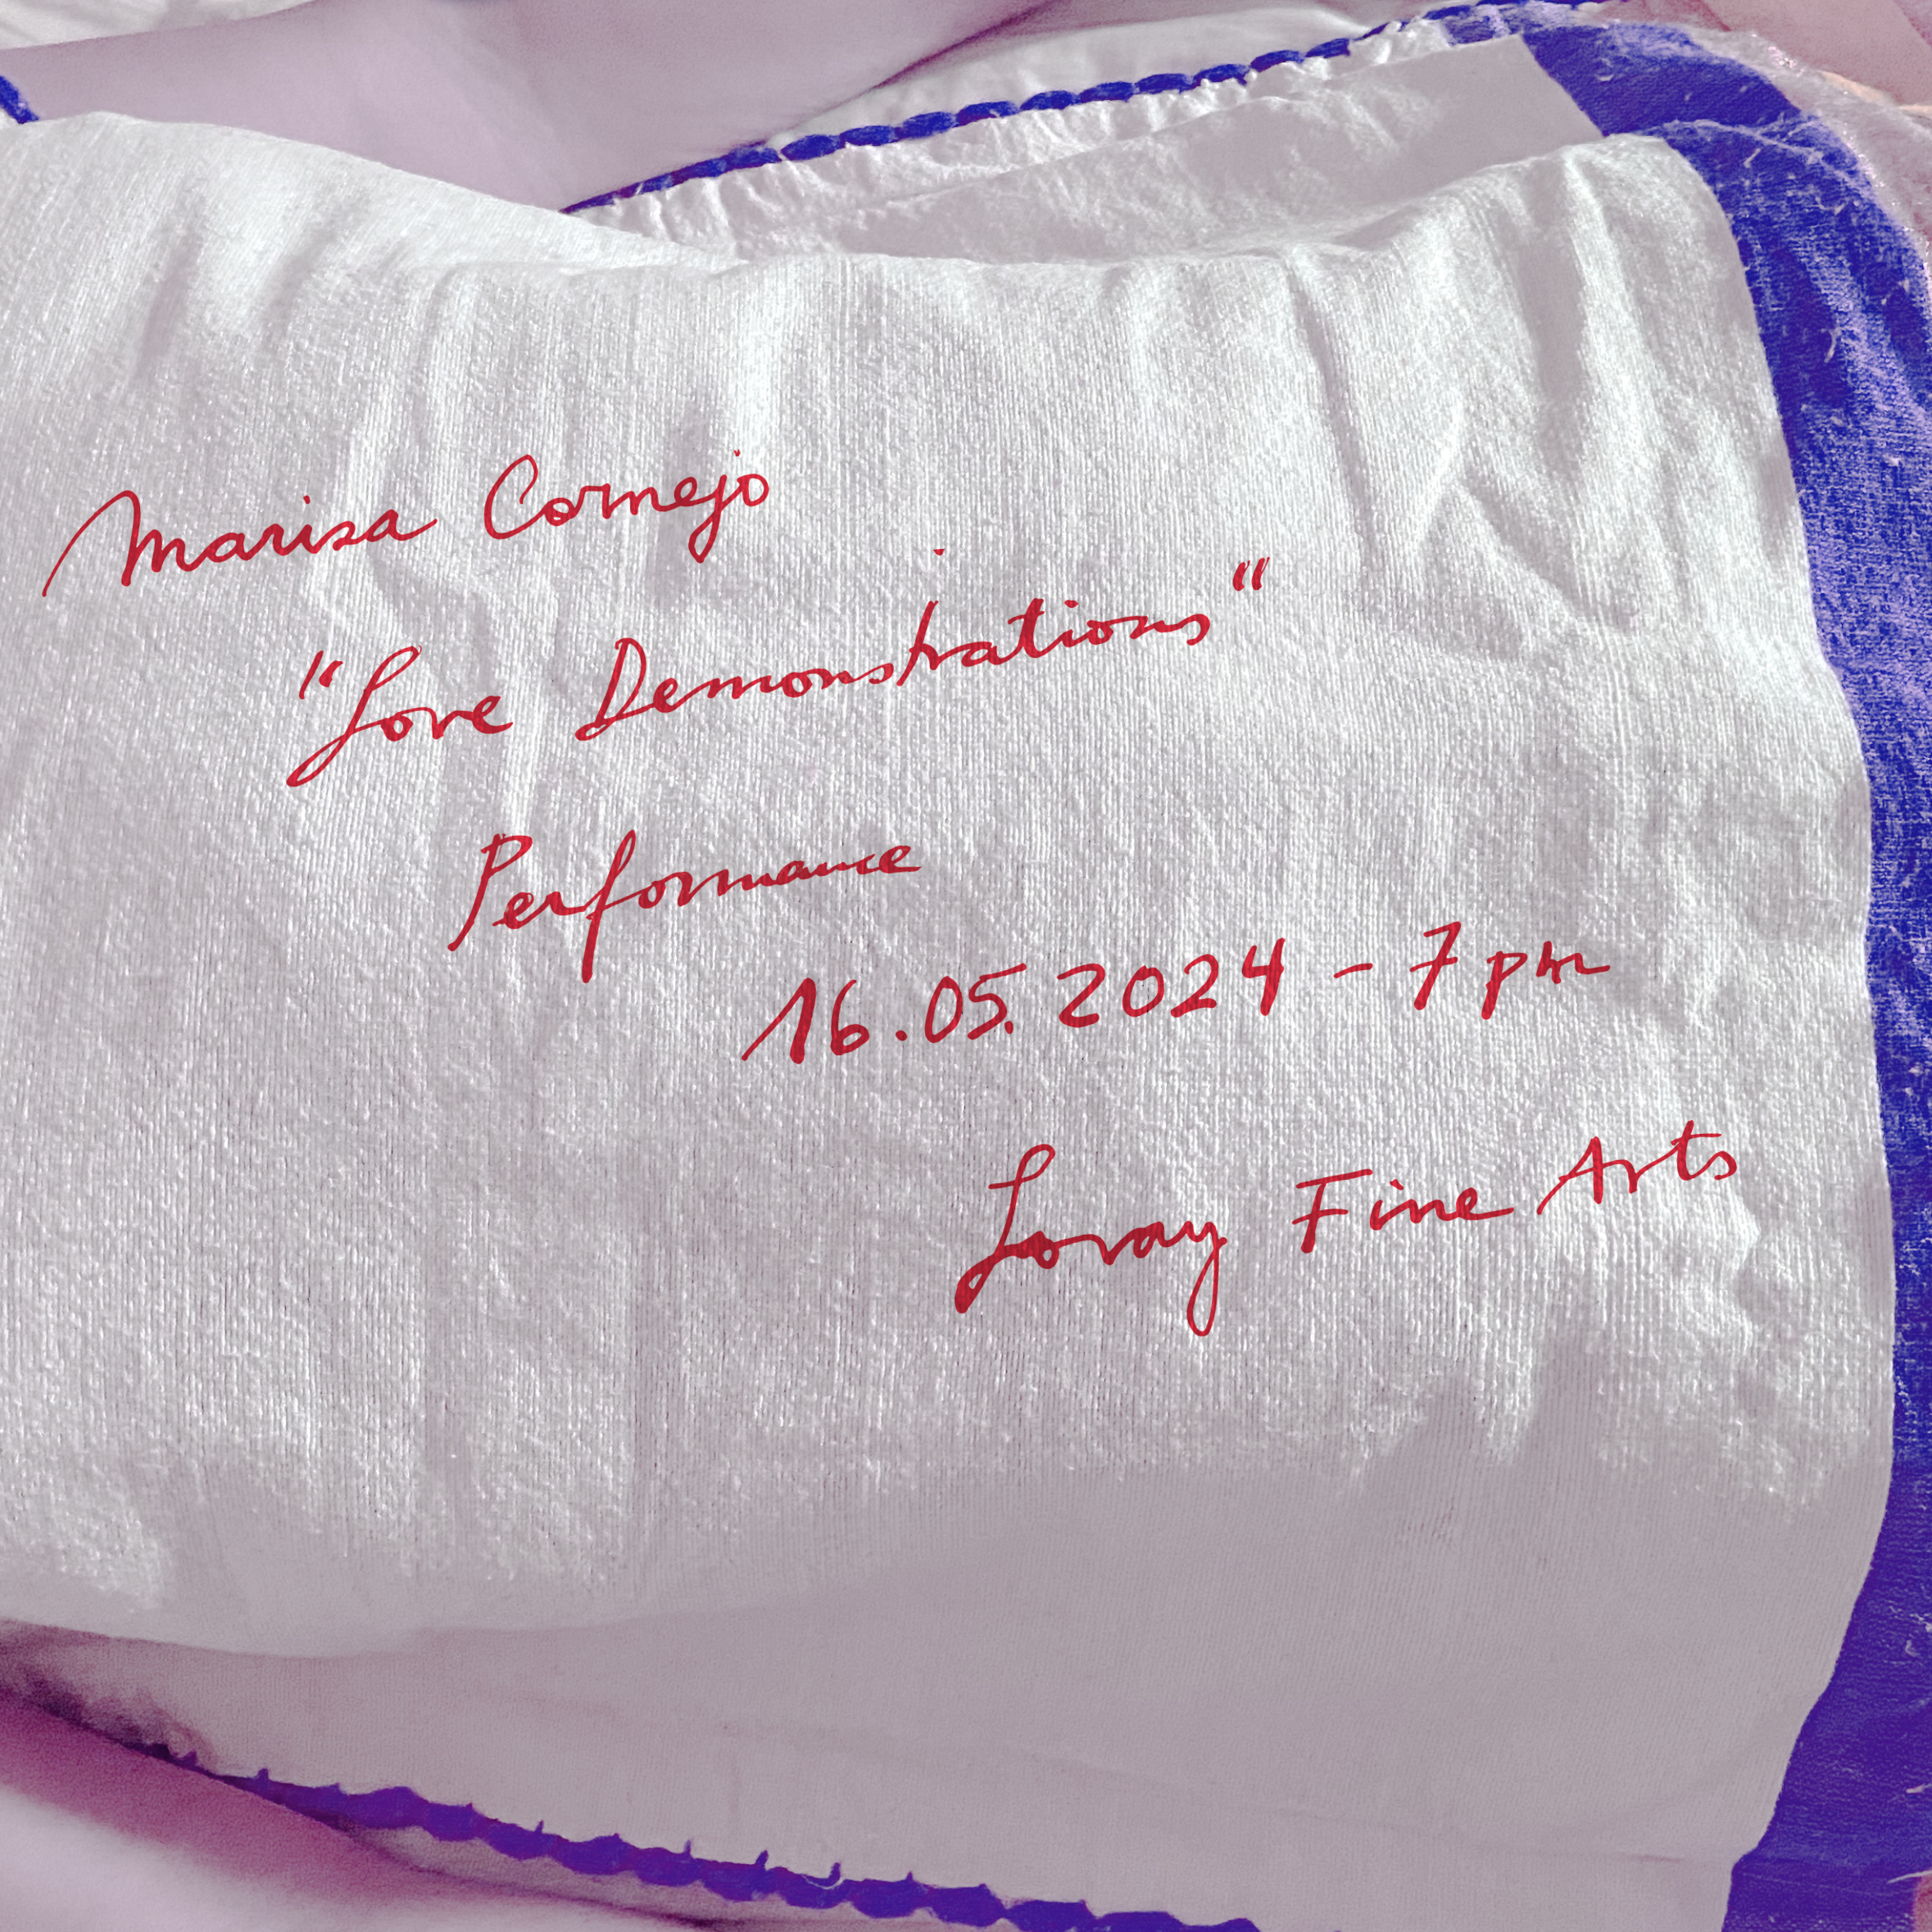 Marisa Cornejo
"Love Demonstrations"
Performance
16.05.2024 - 7 pm
Lovay Fine Arts